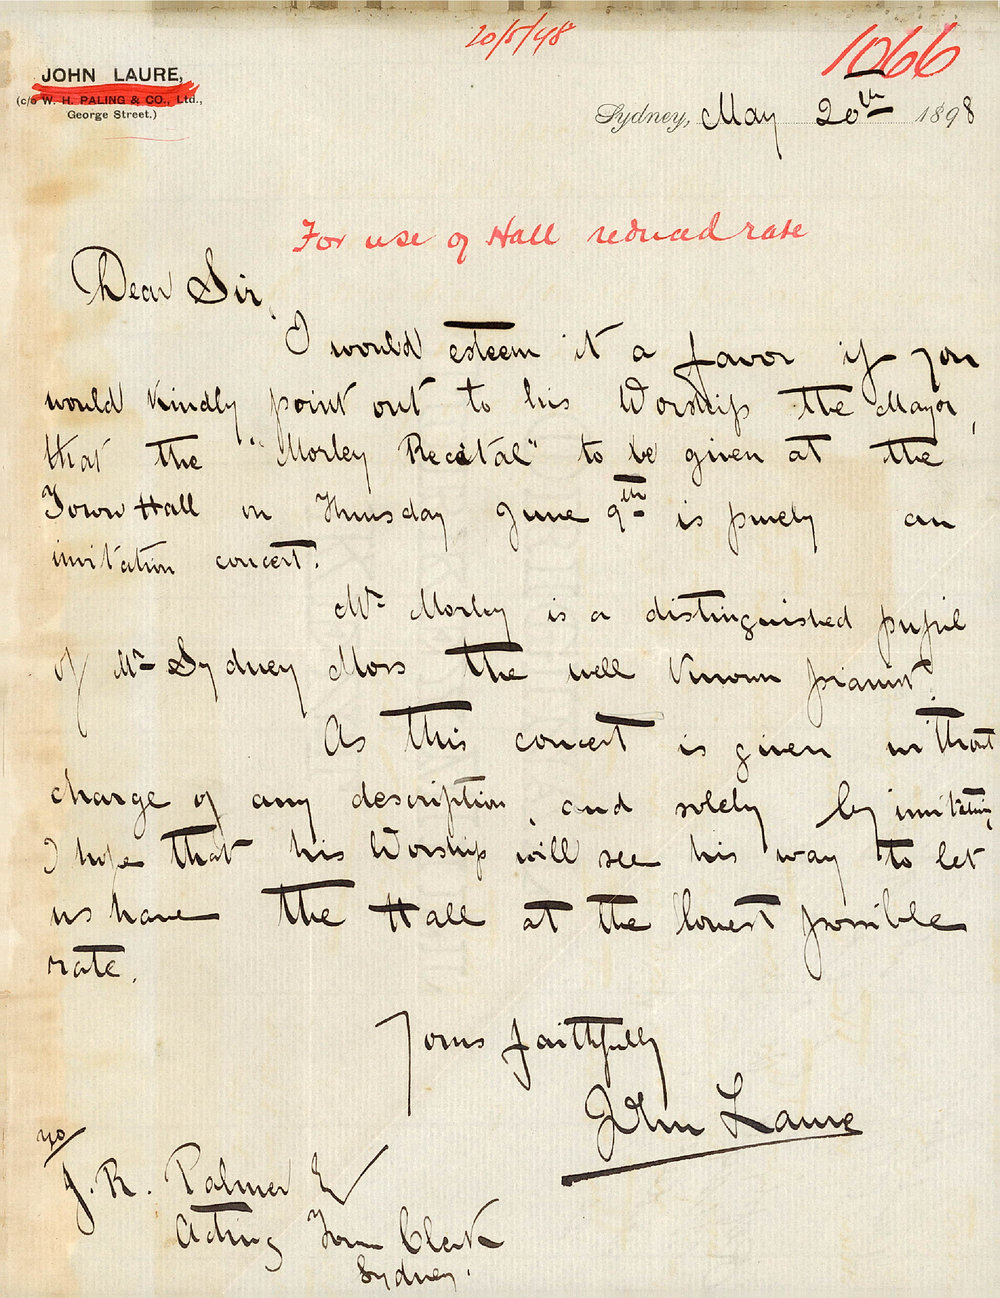 20/5/98
1066
JOHN LAURE,
(c/o W. H. PALING & CO., Ltd.,
George Street.)
Sydney, May 20th 1898
For use of Hall reduced rate
Dear Sir,
I would esteem it a favor if you
would kindly point out to his Worship the Mayor,
that the "Morley Recital" to be given at the
Town Hall on Thursday June 9th is purely an
invitation concert.
Mr Morley is a distinguished pupil
of Mr Sydney Moss the well known pianist.
As this concert is given without
charge of any description, and solely by invitation,
I hope that his Worship will see his way to let
us have the Hall at the lowest possible
rate.
Yours faithfully
John Laure
J. R. Palmer
Acting Town Clerk
Sydney.